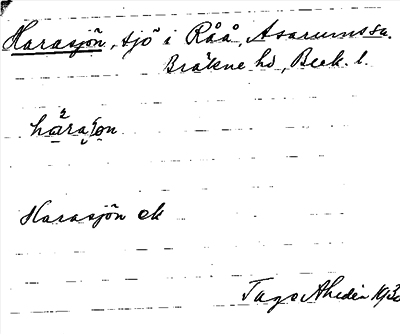 Harasjön, sjö i Råå, Asarums sn.
Bräkne hd, Blek. l.
Harasjön ek
Tage Ahldén 1930